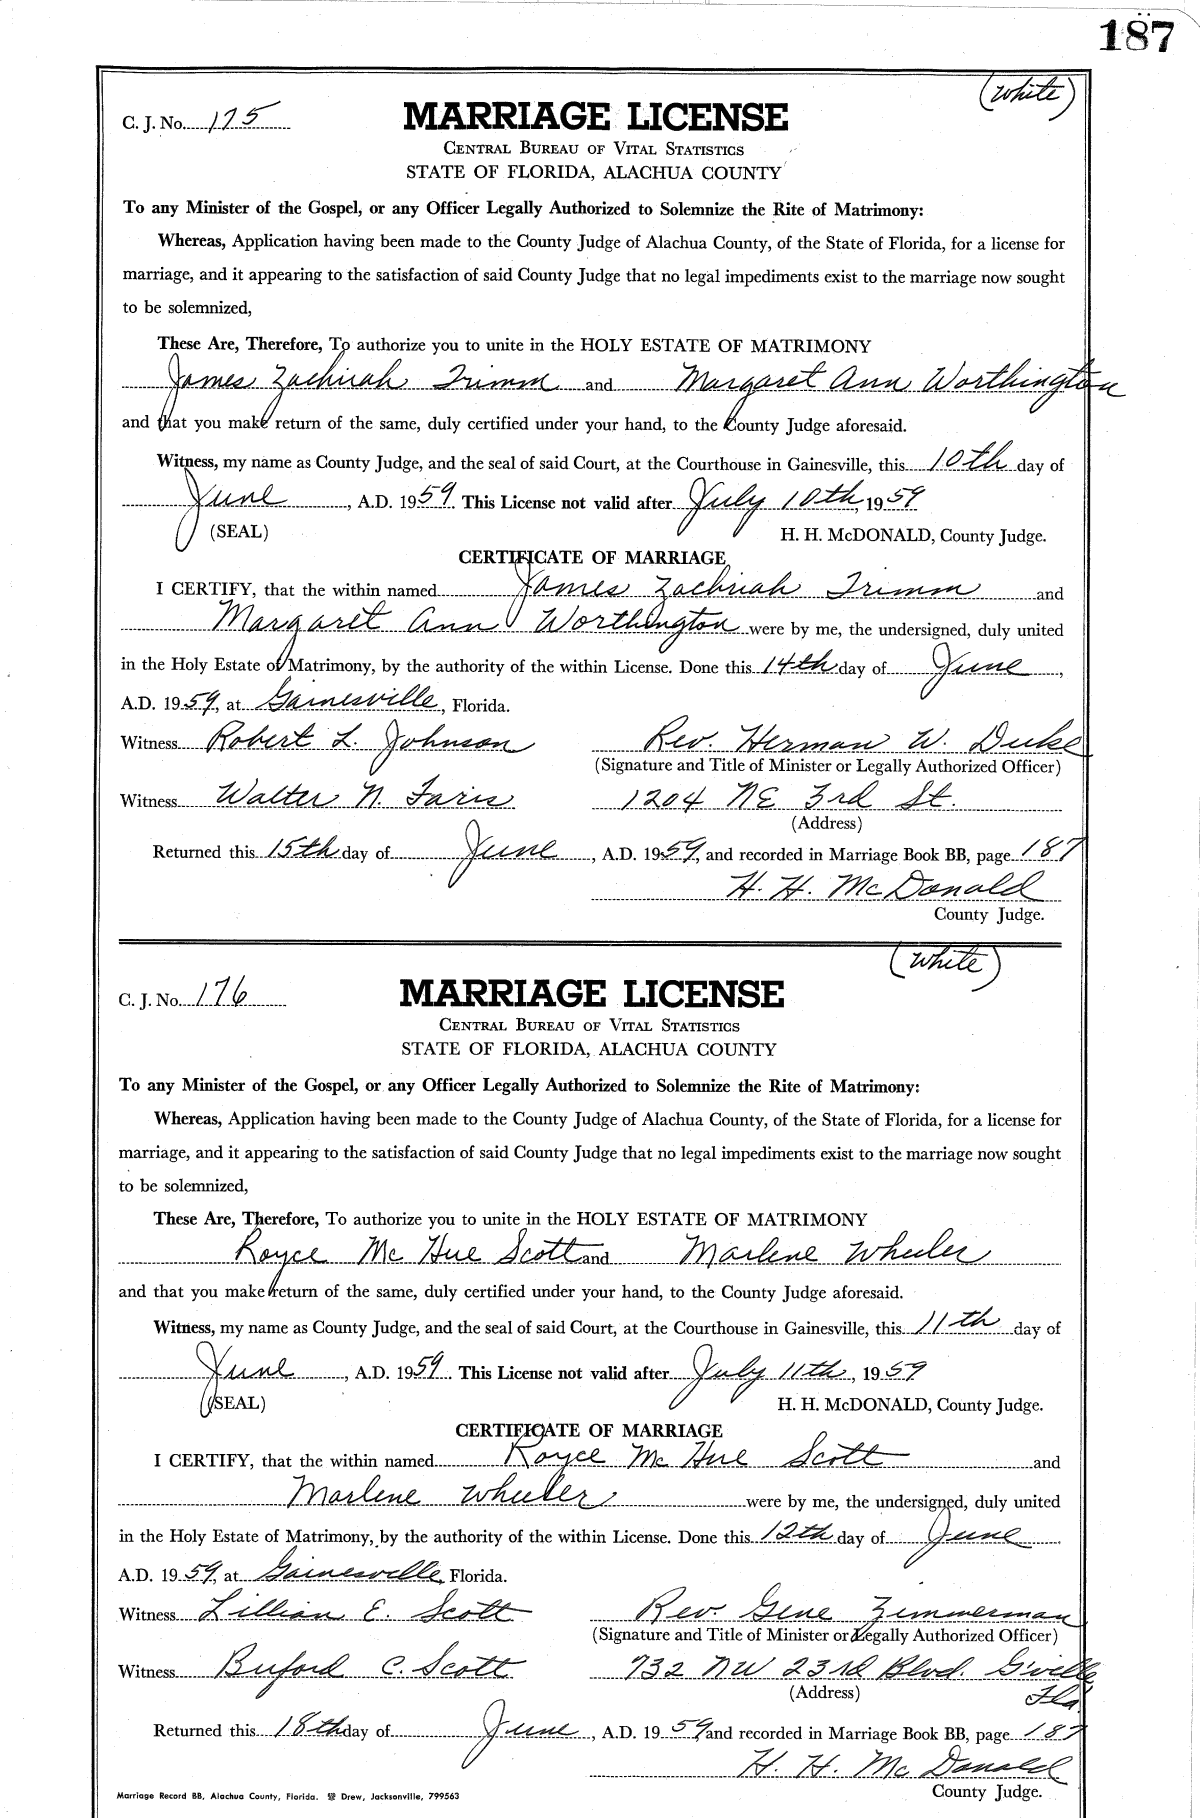 187
(White)
C. J. No. 175
MARRIAGE LICENSE
CENTRAL BUREAU OF VITAL STATISTICS
STATE OF FLORIDA, ALACHUA COUNTY
To any Minister of the Gospel, or any Officer Legally Authorized to Solemnize the Rite of Matrimony:
Whereas, Application having been made to the County Judge of Alachua County, of the State of Florida, for a license for
marriage, and it appearing to the satisfaction of said County Judge that no legal impediments exist to the marriage now sought
to be solemnized,
These Are, Therefore, To authorize you to unite in the HOLY ESTATE OF MATRIMONY
James Zachriah Trimm and Margaret Ann Worthington
and that you make return of the same, duly certified under your hand, to the County Judge aforesaid.
Witness, my name as County Judge, and the seal of said Court, at the Courthouse in Gainesville, this 10th day of
June, A.D. 1959. This License not valid after July 10th, 1959
(SEAL) H. H. McDONALD, County Judge.
CERTIFICATE OF MARRIAGE
I CERTIFY, that the within named James Zachriah Trimm and
Margaret Ann Worthington were by me, the undersigned, duly united
in the Holy Estate of Matrimony, by the authority of the within License. Done this 14th day of June,
A.D. 1959, at Gainesville, Florida.
Witness Robert L. Johnson Rev. Herman W. Duke
(Signature and Title of Minister or Legally Authorized Officer)
Witness Walter N. Faris 1204 NE 3rd St.
(Address)
Returned this 15th day of June, A.D. 1959, and recorded in Marriage Book BB, page 187
H. H. McDonald
County Judge.
(White)
C. J. No. 176
MARRIAGE LICENSE
CENTRAL BUREAU OF VITAL STATISTICS
STATE OF FLORIDA, ALACHUA COUNTY
To any Minister of the Gospel, or any Officer Legally Authorized to Solemnize the Rite of Matrimony:
Whereas, Application having been made to the County Judge of Alachua County, of the State of Florida, for a license for
marriage, and it appearing to the satisfaction of said County Judge that no legal impediments exist to the marriage now sought
to be solemnized,
These Are, Therefore, To authorize you to unite in the HOLY ESTATE OF MATRIMONY
Royce Mc Hue Scott and Marlene Wheeler
and that you make return of the same, duly certified under your hand, to the County Judge aforesaid.
Witness, my name as County Judge, and the seal of said Court, at the Courthouse in Gainesville, this 11th day of
June, A.D. 1959. This License not valid after July 11th, 1959
(SEAL) H. H. McDONALD, County Judge.
CERTIFICATE OF MARRIAGE
I CERTIFY, that the within named Royce Mc Hue Scott and
Marlene Wheeler were by me, the undersigned, duly united
in the Holy Estate of Matrimony, by the authority of the within License. Done this 12th day of June
A.D. 1959, at Gainesville, Florida.
Witness Lillian E. Scott Rev. Gene Zimmerman
(Signature and Title of Minister or Legally Authorized Officer)
Witness Buford C. Scott 732 NW 23rd Blvd. G'ville
(Address) Fla.
Returned this 18th day of June, A.D. 1959, and recorded in Marriage Book BB, page 187
H. H. McDonald
County Judge.
Marriage Record BB, Alachua County, Florida. Drew, Jacksonville, 799563